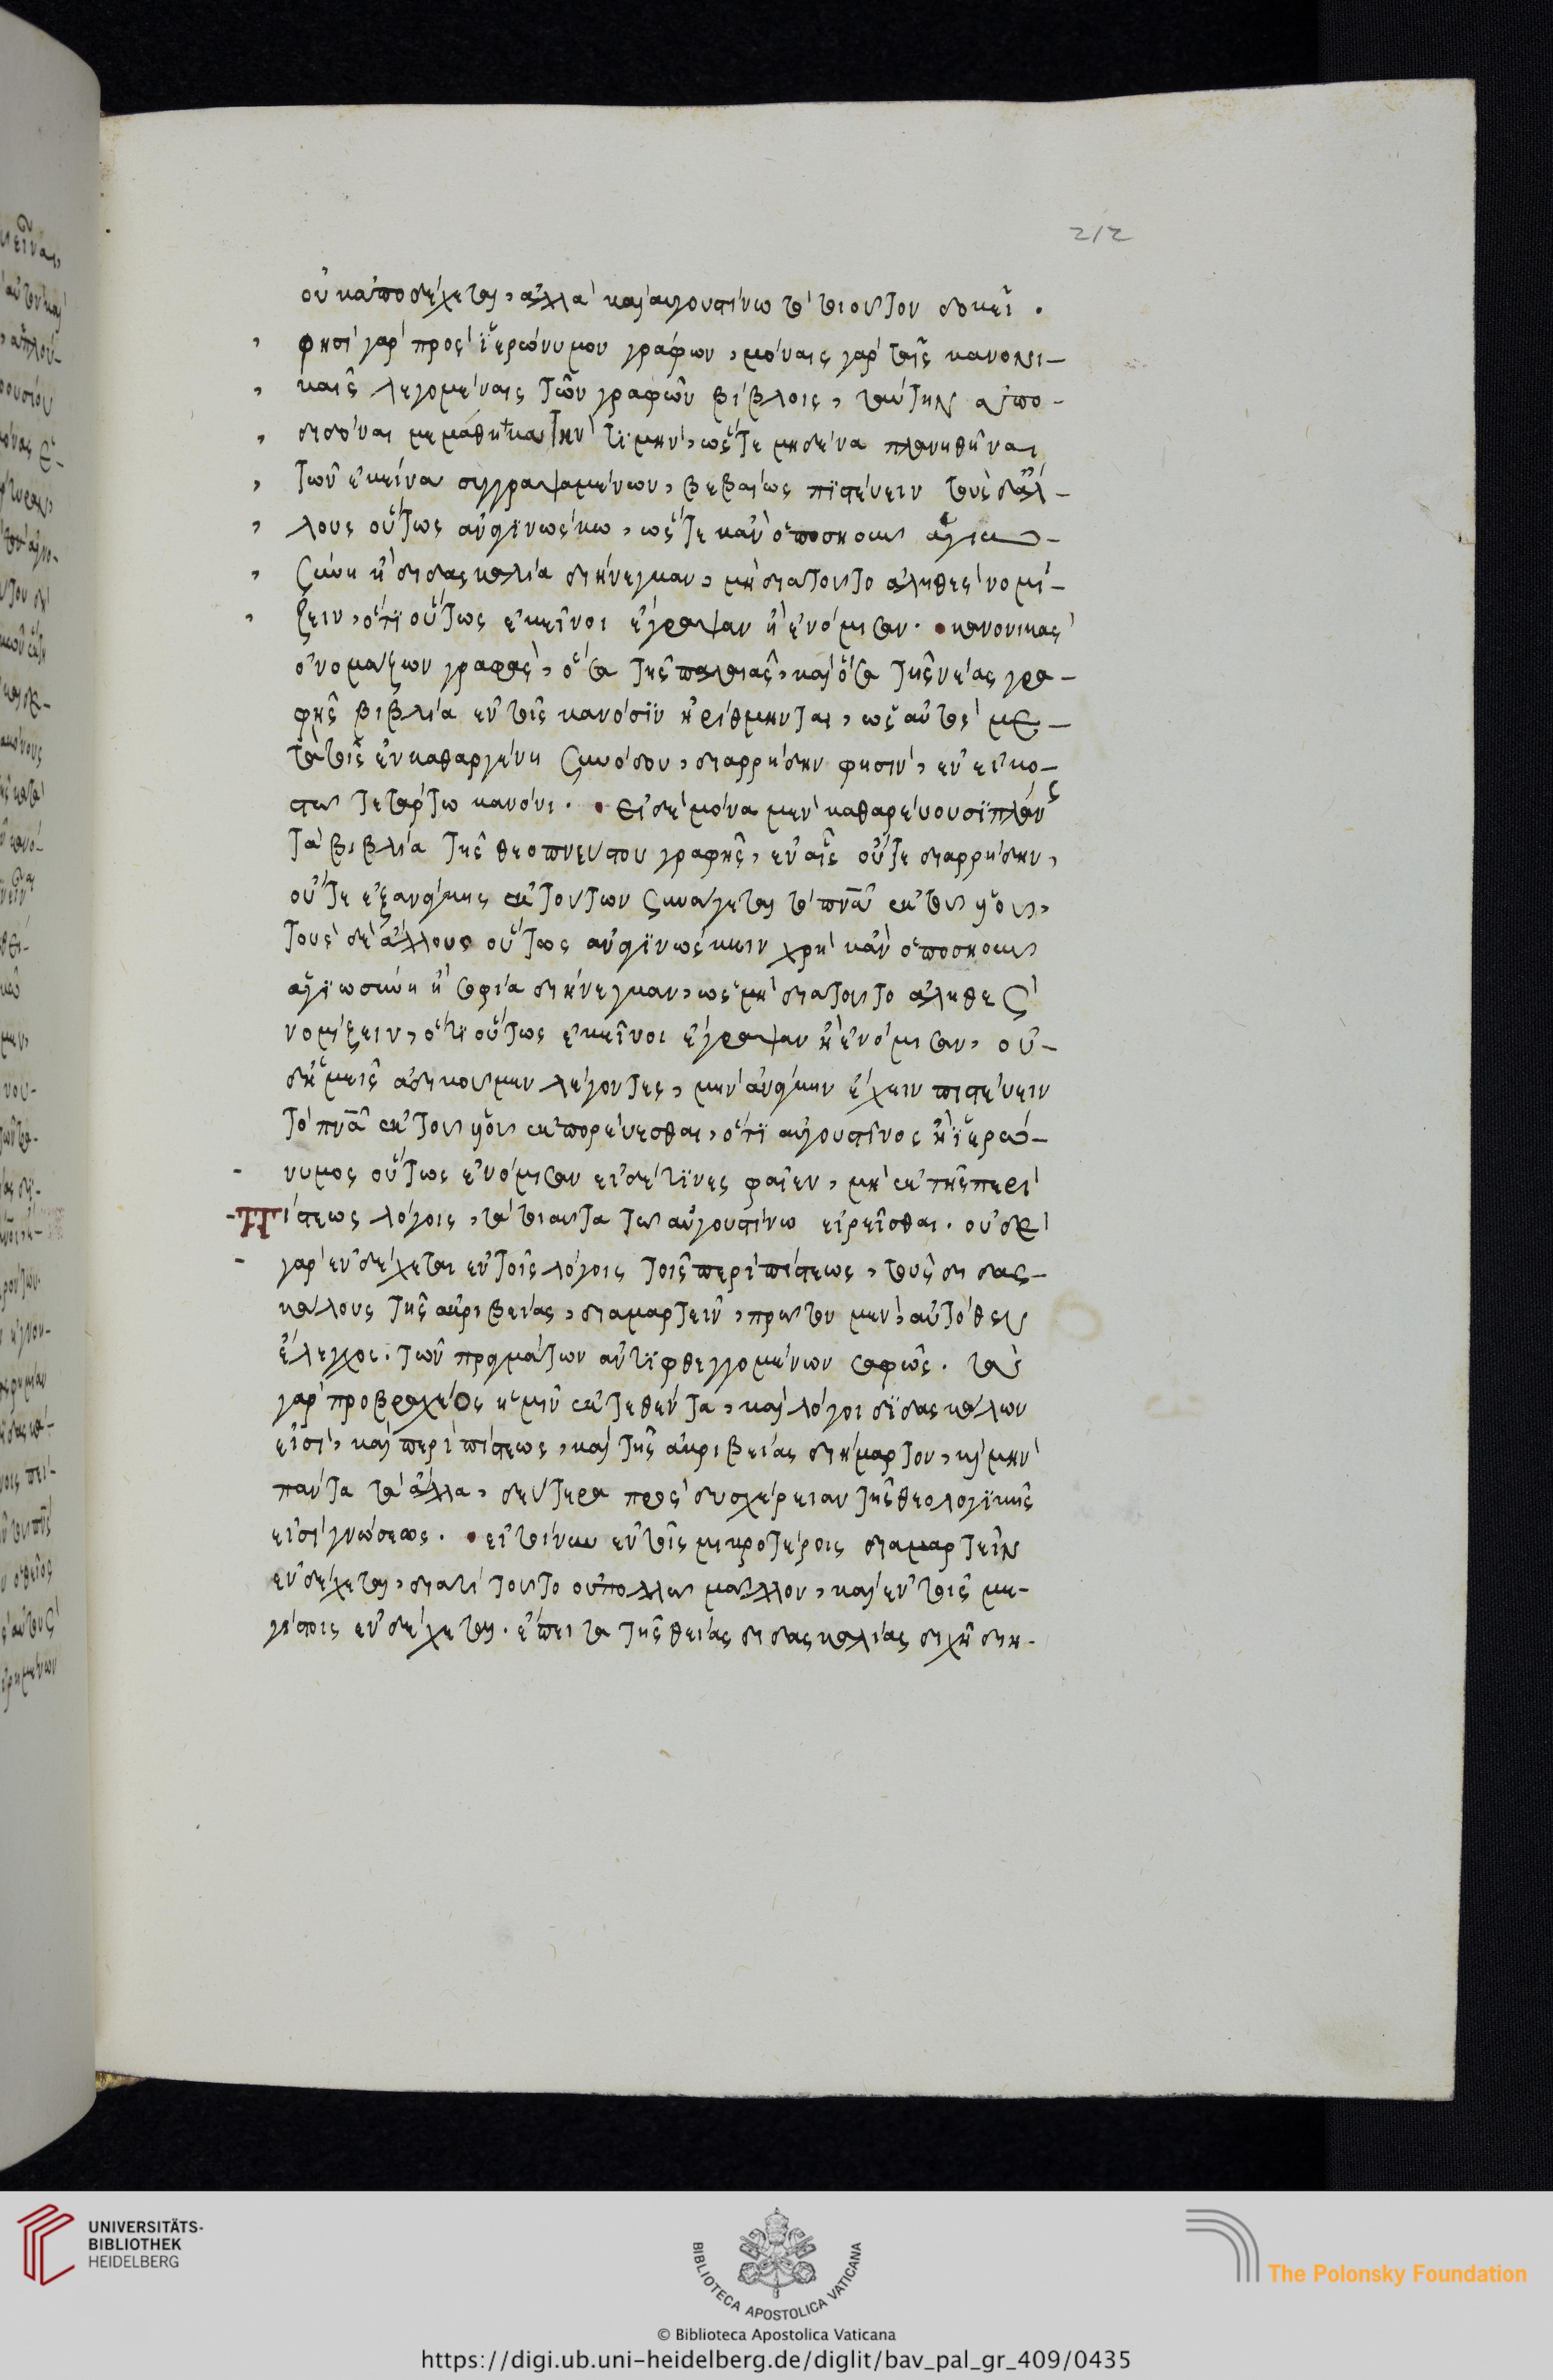 212
οὐκ ἀποδέχεται, ἀλλὰ καὶ αὐγουστίνω τὸ τοιοῦτον δοκεῖ.
φησὶ γὰρ πρὸς ἱερώνυμον γράφων, μόναις γὰρ ταῖς κανονι-
καῖς λεγομέναις τῶν γραφῶν βίβλοις, ταύτην ἀπο-
διδόναι μεμάθηκα τὴν τιμὴν, ὥστε μηδένα πλανηθῆναι
τῶν ἐκεῖνα συγγραψαμένων, βεβαίως πιστεύειν τοὺς δ' ἄλ-
λους οὕτως ἀναγινώσκω, ὥστε κἂν ὁποσηοῦν ἁγιω-
σύνη ἢ διδασκαλία διήνεγκαν, μὴ διατοῦτο ἀληθὲς νομί-
ζειν, ὅτι οὕτως ἐκεῖνοι ἔγραψαν ἢ ἐνόμισαν. κανονικὰς
ὀνομάζων γραφὰς, ὅσα τῆς παλαιᾶς, καὶ ὅσα τῆς νέας γρα-
φῆς βιβλία ἐν τοῖς κανόσιν ἠρίθμηνται, ὡς αὐτὸς με-
τὰ τῆς ἐν καθαργένη συνόδου, διαρρήδην φησὶν, ἐν εἰκο-
στῶ τετάρτω κανόνι. εἰ δὲ μόνα μὲν καθαρεύουσι πλάνης
τὰ βιβλία τῆς θεοπνεύστου γραφῆς, ἐν αἷς οὔτε διαρρήδην,
οὔτε ἐξανάγκης ἐκ τούτων συνάγεται τὸ πνα ἐκ τοῦ υἱοῦ,
τοὺς δὲ ἄλλους οὕτως ἀναγινώσκειν χρὴ κἂν ὁποσηοῦν
ἁγιωσύνη ἢ σοφία διήνεγκαν, ὡς μὴ διατοῦτο ἀληθὲς
νομίζειν, ὅτι οὕτως ἐκεῖνοι ἔγραψαν ἢ ἐνόμισαν, οὐ-
δ' ἡμεῖς ἀδικοῦμεν λέγοντες, μὴν ἀνάγκην ἔχειν πιστεύειν
τὸ πνα ἐκ τοῦ υἱοῦ ἐκπορεύεσθαι, ὅτι αὐγουστῖνος ἢ ἱερώ-
νυμος οὕτως ἐνόμισαν εἰ δέ τινες φαῖεν, μὴ ἐν τῆς περὶ
πίστεως λόγοις, τὰ τοιαῦτα τῶ αὐγουστίνω εἰρεῖσθαι. οὐδὲ
γὰρ ἐνδέχεται ἐν τοῖς λόγοις τοῖς περὶ πίστεως, τοὺς διδας-
κάλους τῆς ἀκριβείας, διαμαρτεῖν, πρῶτον μὲν, αὐτόθεν
ἔλεγχος. τῶν πραγμάτων ἀντιφθεγγομένων σαφῶς. τὰ
γὰρ προβραχέος ἡμῖν ἐκτεθέντα, καὶ λόγοι διδασκάλων
εἰσὶ, καὶ περὶ πίστεως, καὶ τῆς ἀκριβείας διήμαρτον, καὶ μὴν
πάντα τὰ ἄλλα, δεύτερα πρὸς δυσχέρειαν τῆς θεολογικῆς
εἰσὶ γνώσεως. εἰ τοίνυν ἐν τοῖς μικροτέροις διαμαρτεῖν
ἐνδέχεται, διατί τοῦτο οὐ πολλῶ μᾶλλον, καὶ ἐν τοῖς με-
γίστοις ἐνδέχεται. ἔπειτα τῆς θείας διδασκαλίας διχῆ διη-
UNIVERSITÄTS-
BIBLIOTHEK
HEIDELBERG
BIBLIOTECA APOSTOLICA VATICANA
The Polonsky Foundation
© Biblioteca Apostolica Vaticana
https://digi.ub.uni-heidelberg.de/diglit/bav_pal_gr_409/0435